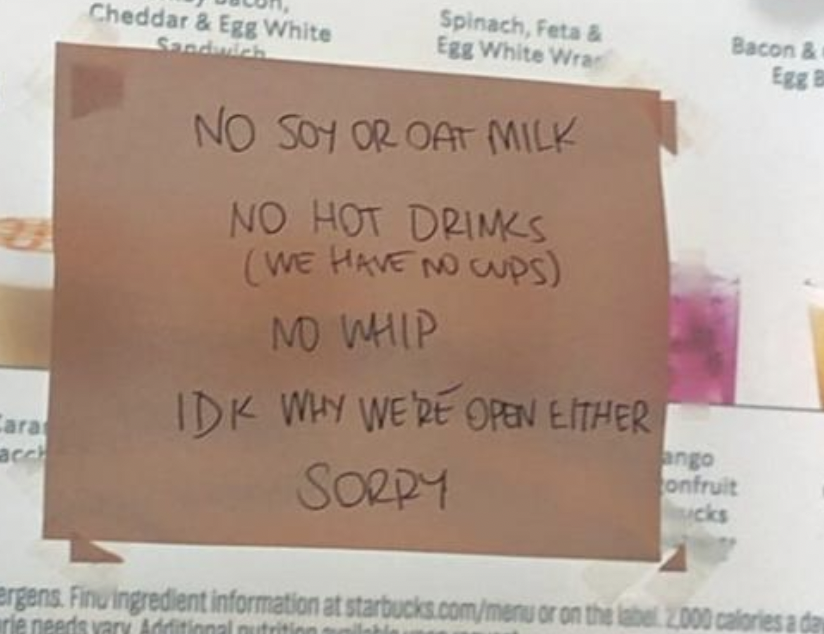 Bacon,
Cheddar & Egg White
Sandwich
Spinach, Feta &
Egg White Wrap
Bacon &
Egg B
NO SOY OR OAT MILK
NO HOT DRINKS
(WE HAVE NO CUPS)
NO WHIP
IDK WHY WE'RE OPEN EITHER
SORRY
Cara
acch
ango
onfruit
ucks
ergens. Find ingredient information at starbucks.com/menu or on the label. 2,000 calories a day
orie needs vary. Additional nutrition available upon request